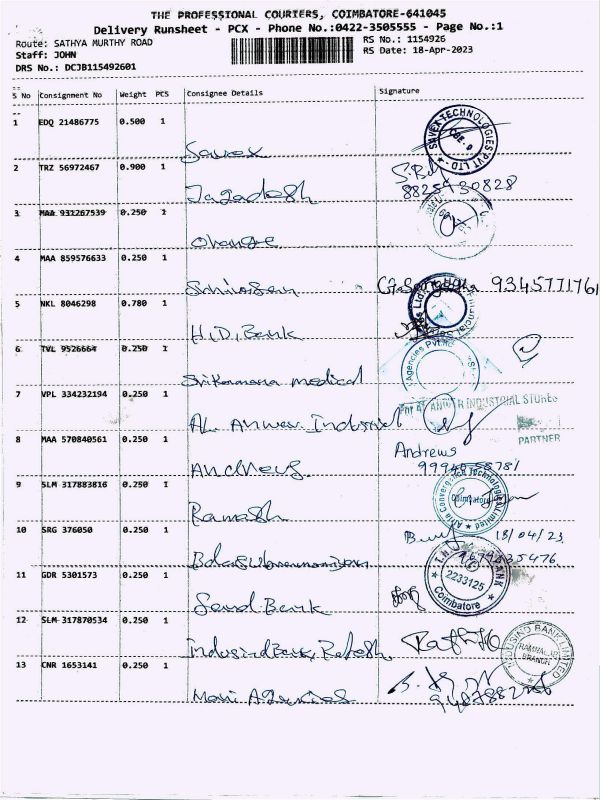 THE PROFESSIONAL COURIERS, COIMBATORE-641045
Delivery Runsheet - PCX - Phone No.:0422-3505555 - Page No.:1
Route: SATHYA MURTHY ROAD
RS No.: 1154926
Staff: JOHN
RS Date: 18-Apr-2023
DRS No.: DCJB115492601
S No Consignment No Weight PCS Consignee Details Signature
1 EDQ 21486775 0.500 1
Savex
SAVEX TECHNOLOGIES PVT LTD
CBE
2 TRZ 56972467 0.900 1
Jagadesh
8825930828
3 MAA 931267539 0.250 1
Orange
4 MAA 859576633 0.250 1
Srinivasan
9345771761
5 NKL 8046298 0.780 1
H.D. Bank
6 TVL 9526664 0.250 1
Srikamana medical
Agencies Pvt
7 VPL 334232194 0.250 1
AL Anwar Industrial
INDUSTRIAL STORES
PARTNER
8 MAA 570840561 0.250 1
Andrews
Andrews
9 SLM 317883816 0.250 1
Ramesh
Coimbatore
10 SRG 376050 0.250 1
Balasubramaniyan
18/04/23
11 GDR 5301573 0.250 1
Saud Bank
BANK
2233125
Coimbatore
12 SLM 317870534 0.250 1
Indusind Bank, Rafesh
INDUSIND BANK LIMITED
BRANCH
13 CNR 1653141 0.250 1
Mani Agencies